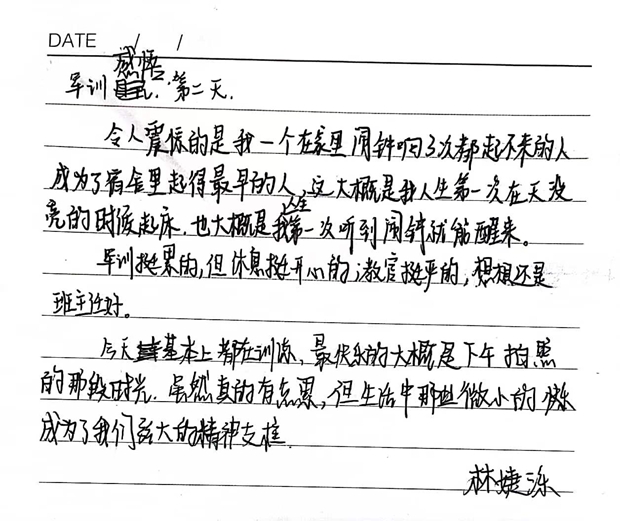 DATE / /
军训感悟·第二天.
令人震惊的是我一个在家里闹钟响了3次都起不来的人
成为了宿舍里起得最早的人,这大概是我人生第一次在天没
亮的时候起床.也大概是我人生第一次听到闹钟就能醒来。
军训挺累的,但休息挺开心的,教官挺严的,想想还是
班主任好。
今天基本上都在训练,最快乐的大概是下午拍照
的那段时光.虽然真的有点累,但生活中那些微小的快乐
成为了我们强大的精神支柱.
林婕泺